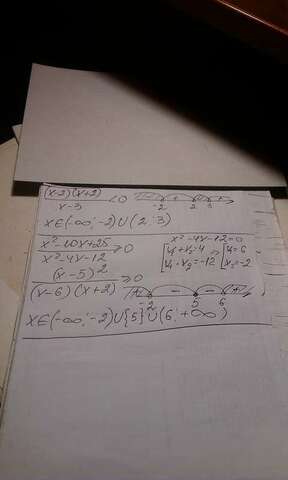 (x-2)(x+2)
x-3 <0 -2 2 3
x∈(-∞;-2)∪(2;3)
x²-10x+25 ≥0 x²-4x-12=0
x²-4x-12 x₁+x₂=4 x₁=6
(x-5)² ≥0 x₁·x₂=-12 x₂=-2
(x-6)(x+2) -2 5 6
x∈(-∞;-2)∪{5}∪(6;+∞)